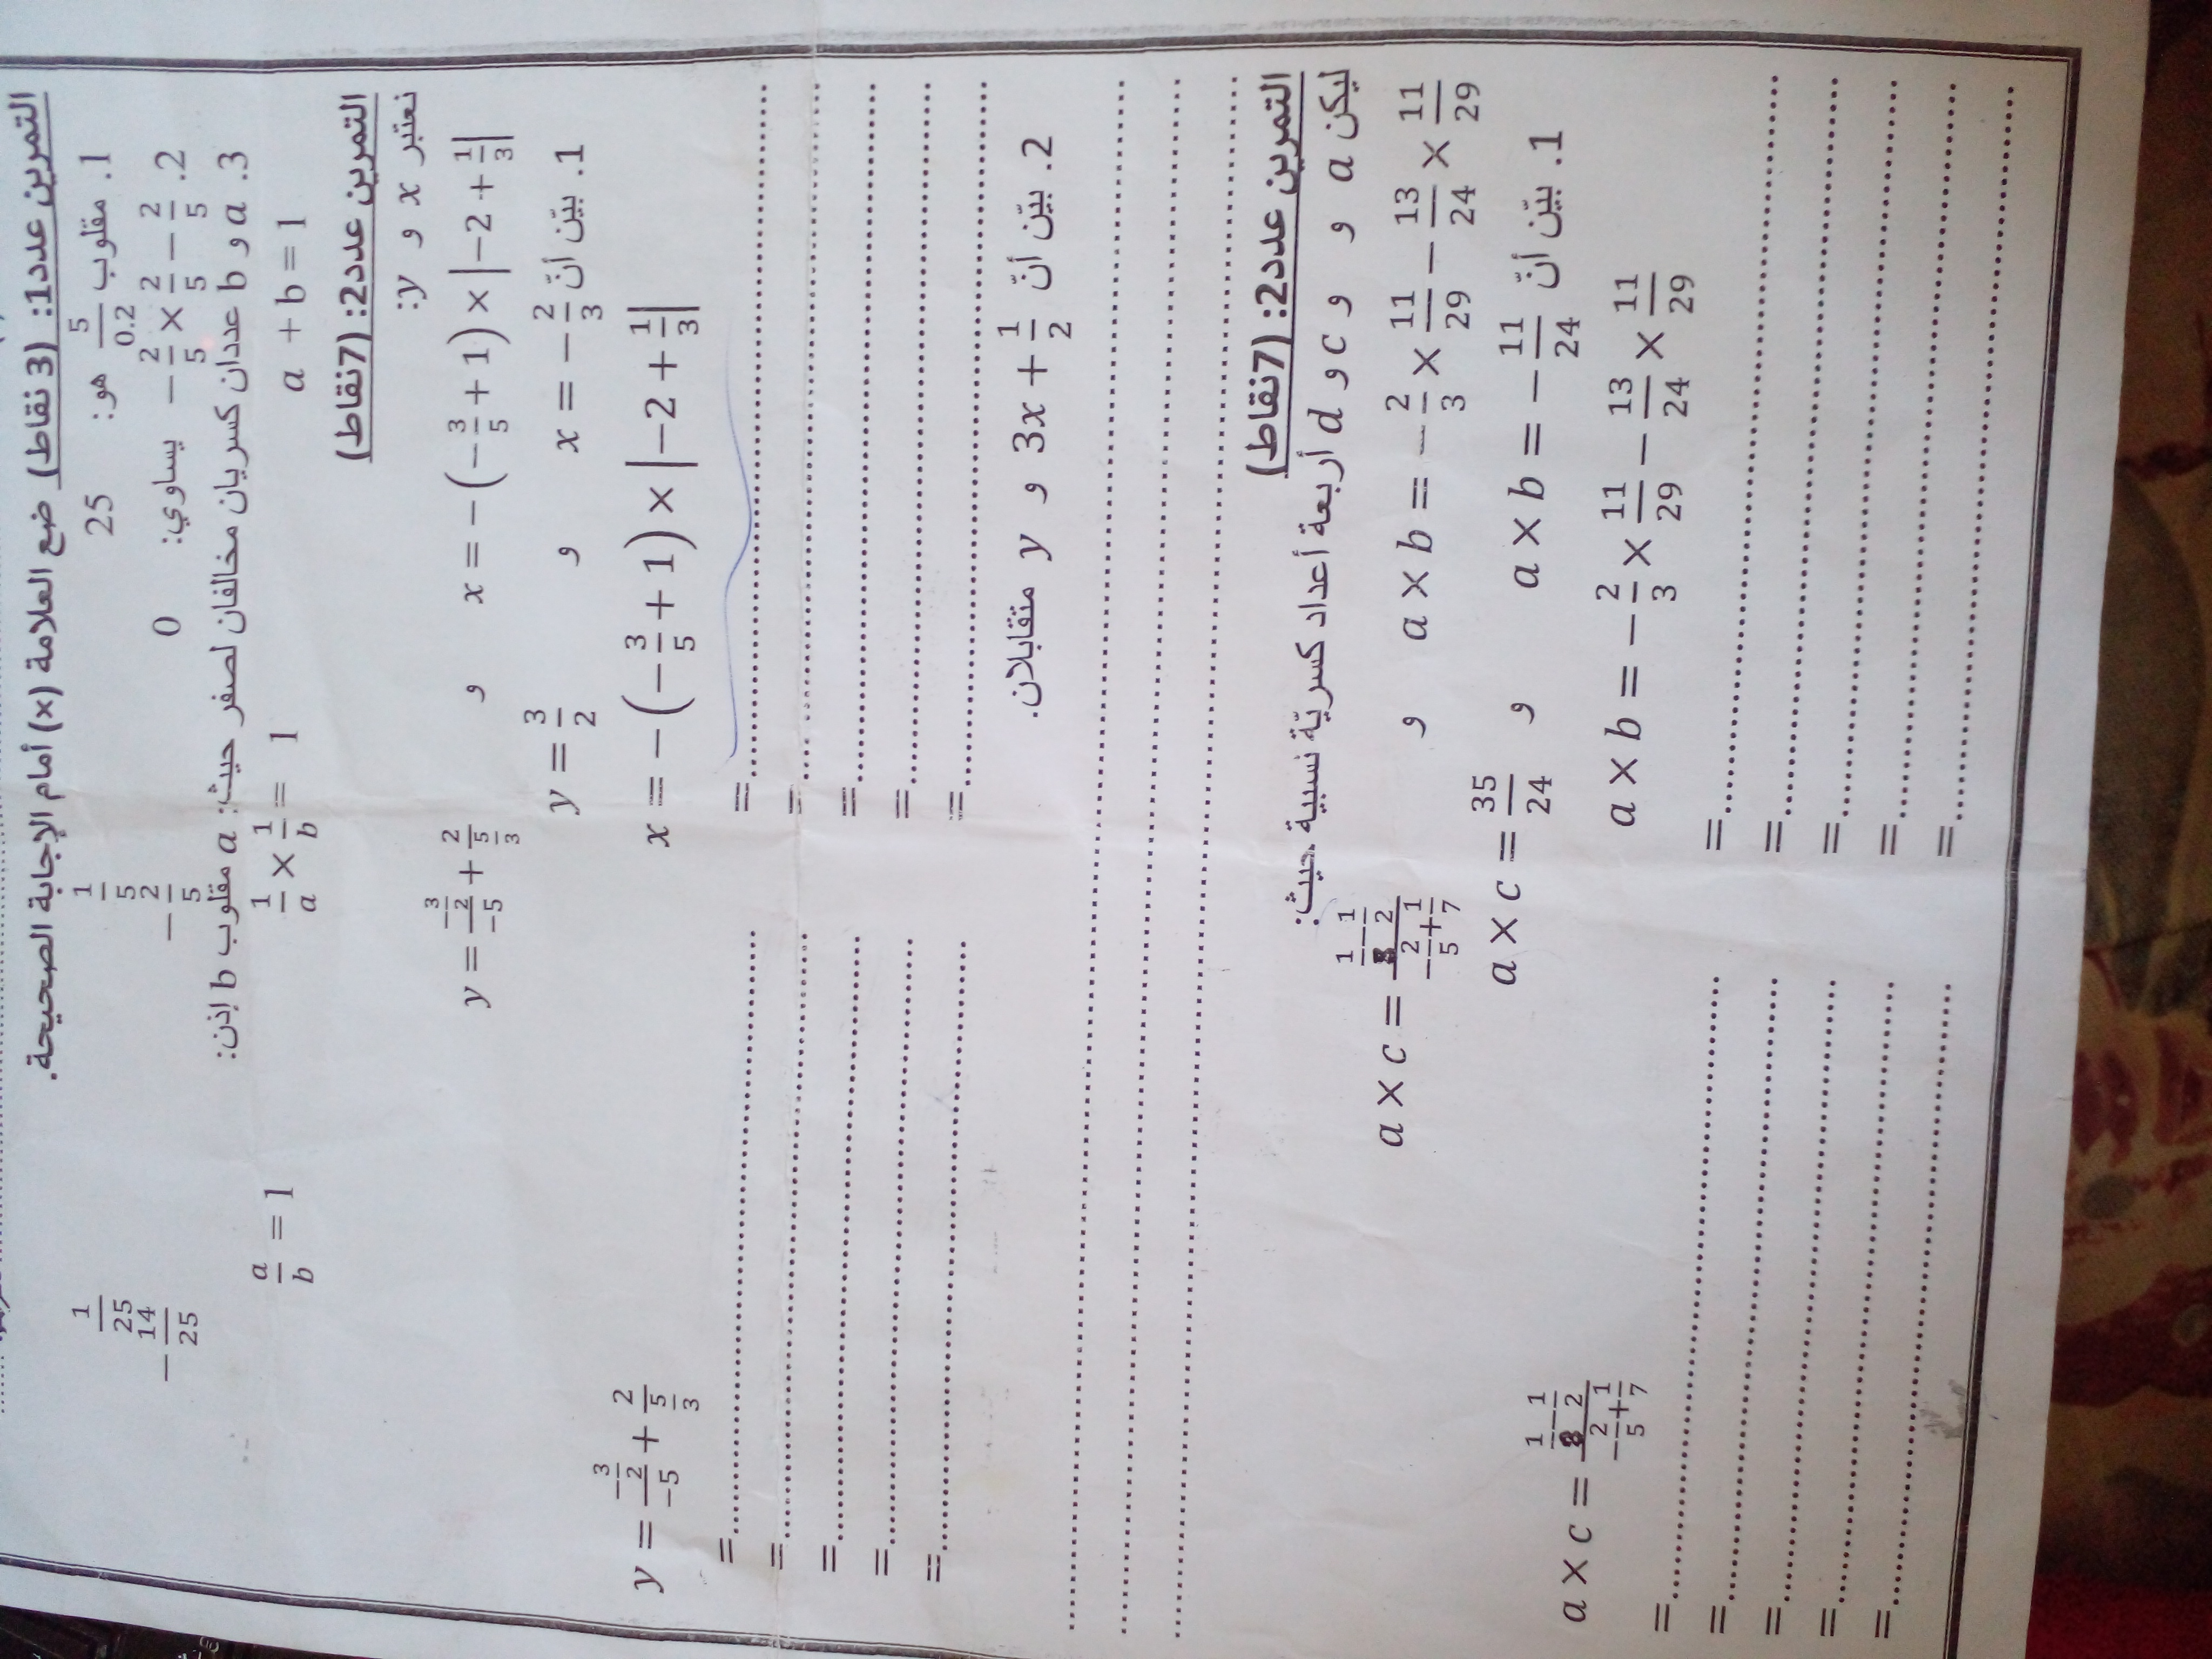 التمرين عدد1: (3 نقاط) ضع العلامة (x) أمام الإجابة الصحيحة.
1. مقلوب 5/0.2 هو: 25 1/5 1/25
2. −2/5 × 2/5 − 2/5 يساوي: 0 −2/5 −14/25
3. a و b عددان كسريان مخالفان لصفر حيث: a مقلوب b إذن:
a + b = 1 1/a × 1/b = 1 a/b = 1
التمرين عدد2: (7نقاط)
نعتبر x و y:
x = −(−3/5 + 1) × |−2 + 1/3| و y = (−3/2)/(−5) + 2/(5/3)
1. بيّن أنّ x = −2/3 و y = 3/2
x = −(−3/5 + 1) × |−2 + 1/3| y = (−3/2)/(−5) + 2/(5/3)
=.......... =..........
=.......... =..........
=.......... =..........
=.......... =..........
=.......... =..........
2. بيّن أنّ 3x + 1/2 و y متقابلان.
..........
..........
..........
التمرين عدد2: (7نقاط)
ليكن a و c و d أربعة أعداد كسريّة نسبية حيث:
a × b = −2/3 × 11/29 − 13/24 × 11/29 و a × c =
1. بيّن أنّ a × b = −11/24 و a × c = 35/24
a × b = −2/3 × 11/29 − 13/24 × 11/29 a × c =
=.......... =..........
=.......... =..........
=.......... =..........
=.......... =..........
=.......... =..........